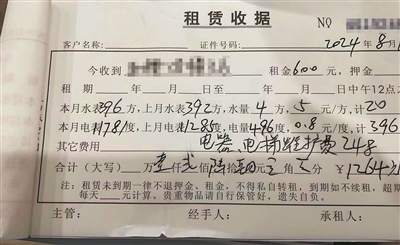 租赁收据 NO
客户名称: 证件号码: 2024年8月1
今收到 租金600元,押金
租期 年 月 日 年 月 日中午12点
本月水表396方,上月水表392方,水量4方,5元/方,计20
本月电表1781度,上月电表1285度,电量496度,0.8元/度,计396
其它费用 电器电梯维护费248
合计(大写) 万 壹仟贰佰 拾 元 角 分 ¥1264
注:租赁未到期一律不退押金、租金,不得私自转租,到期如不续租,超期
每天 元计算。贵重物品请自行保管好,遗失自负。
主管: 经手人: 承租人: